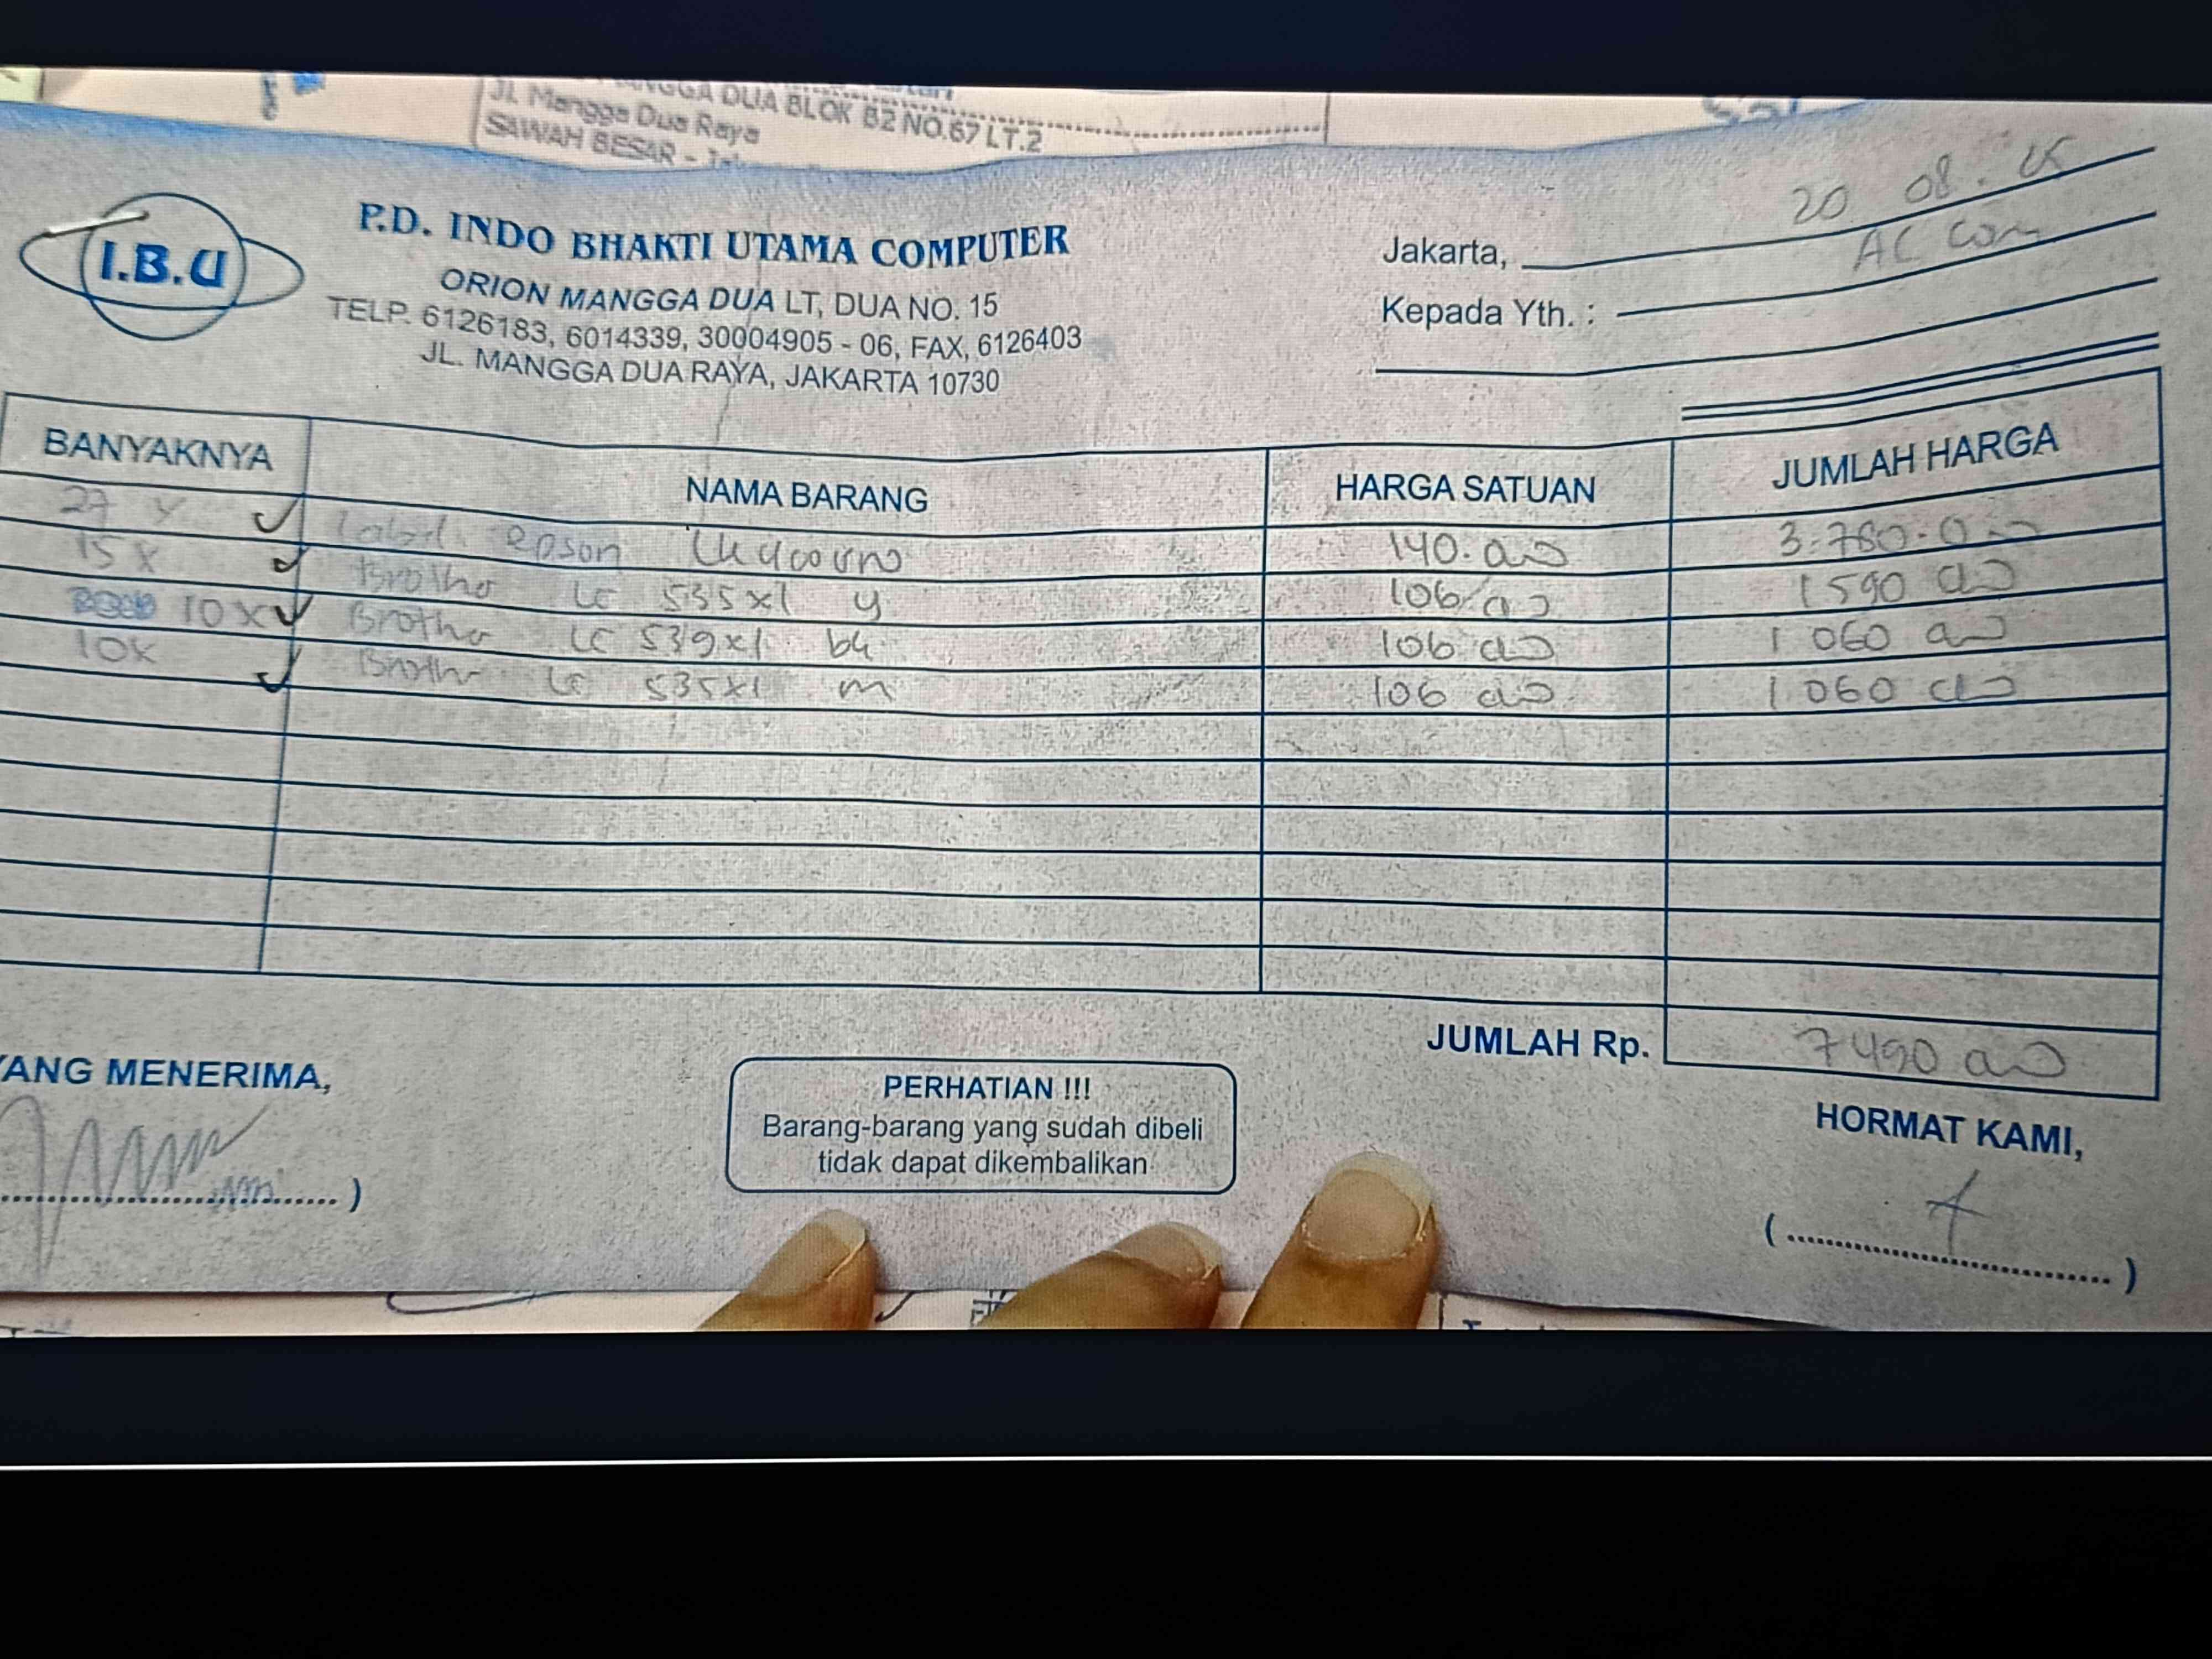 NGGA DUA BLOK B2 NO.67 LT.2
JL Mangga Dua Raya
SAWAH BESAR -
I.B.U
P.D. INDO BHAKTI UTAMA COMPUTER
ORION MANGGA DUA LT, DUA NO. 15
TELP. 6126183, 6014339, 30004905 - 06, FAX, 6126403
JL. MANGGA DUA RAYA, JAKARTA 10730
Jakarta, 20 08.
Kepada Yth. : AC Com
BANYAKNYA NAMA BARANG HARGA SATUAN JUMLAH HARGA
27 epson 140. 3.780.
15 x Brother LC 535xl y 106 1 590
10 x Brother LC 539xl bk 106 1 060
10x Brother LC 535xl m 106 1 060
JUMLAH Rp. 7 490
YANG MENERIMA,
PERHATIAN !!!
Barang-barang yang sudah dibeli
tidak dapat dikembalikan
HORMAT KAMI,